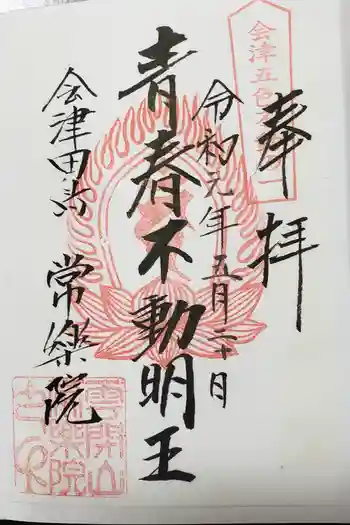 奉拝
会津五色不動
令和元年五月二十日
青春不動明王
会津田島 常楽院
雲閑山
常楽院